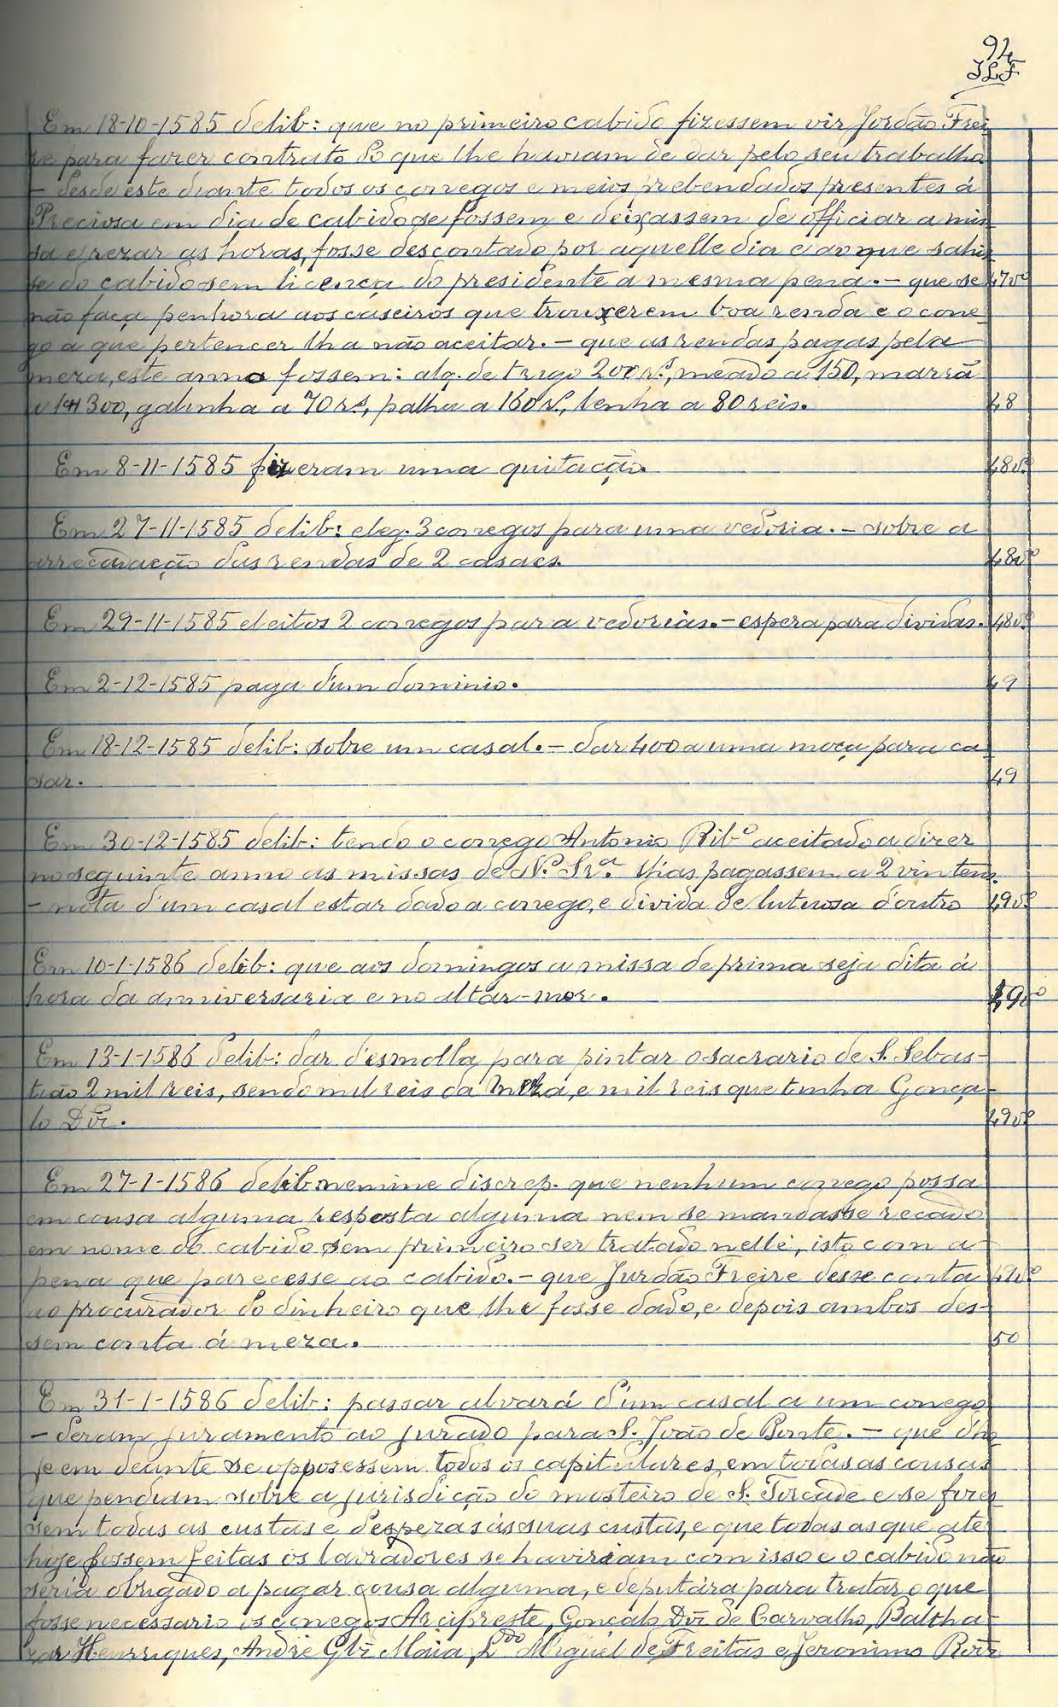 94
JLF
Em 18-10-1585 delib: que no primeiro cabido fizessem vir Jordão Frei-
re para fazer contrato do que lhe haviam de dar pelo seu trabalho
- desde este diante todos os conegos e meios prebendados presentes á
Preciosa em dia de cabido se fossem e deixassem de officiar a mis-
sa e rezar as horas, fosse descontado por aquelle dia e ao que sahis-
se do cabido sem licença do presidente a mesma pena. - que se 47vº
não faça penhora aos caseiros que trouxerem boa renda e o cone-
go a que pertencer lha não aceitar. - que as rendas pagas pela
meza, este anno fossem: alq. de trigo 200 rs, meado a 150, marrã
a 300, galinha a 70 rs, palha a 160 rs, lenha a 80 reis. 48
Em 8-11-1585 fizeram uma quitação. 48vº
Em 27-11-1585 delib: eleg. 3 conegos para uma vedoria. - sobre a
arrecadação das rendas de 2 casaes. 48vº
Em 29-11-1585 eleitos 2 conegos para vedorias. - espera para dividas. 48vº
Em 2-12-1585 paga d'um dominio. 49
Em 18-12-1585 delib: sobre um casal. - dar 400 a uma moça para ca-
sar. 49
Em 30-12-1585 delib: tendo o conego Antonio Ribº aceitado a dizer
no seguinte anno as missas de Nª Srª lhas pagassem a 2 vintens
- nota d'um casal estar dado a conego, e divida de lutuosa d'outro 49vº
Em 10-1-1586 delib: que aos domingos a missa de prima seja dita á
hora da anniversaria e no altar-mor. 49vº
Em 13-1-1586 delib: dar d'esmolla para pintar o sacrario de S. Sebas-
tião 2 mil reis, sendo mil reis da meza, e mil reis que tinha Gonça-
lo Dĩz. 49vº
Em 27-1-1586 delib. nemine discrep. que nenhum conego possa
em cousa alguma resposta alguma nem se mandasse recado
em nome do cabido sem primeiro ser tratado nelle, isto com a
pena que parecesse ao cabido. - que Jurdão Freire desse conta 49vº
ao procurador do dinheiro que lhe fosse dado, e depois ambos des-
sem conta á meza. 50
Em 31-1-1586 delib: passar alvará d'um casal a um conego
- deram juramento ao jurado para S. João de Ponte. - que d'ho-
je em deante se oppozessem todos os capitulares, em todas as cousas
que pendiam sobre a jurisdicção do mosteiro de S. Torcade e se fizes-
sem todas as custas e despezas ás suas custas, e que todas as que até
hoje fossem feitas os lavradores se haviriam com isso e o cabido não
seria obrigado a pagar cousa alguma, e deputára para tratar o que
fosse necessario os conegos Arcipreste, Gonçalo Dĩz de Carvalho, Baltha-
zar Henrriques, André Glz Maia, Ldo Miguel de Freitas e Jeronimo Roiz